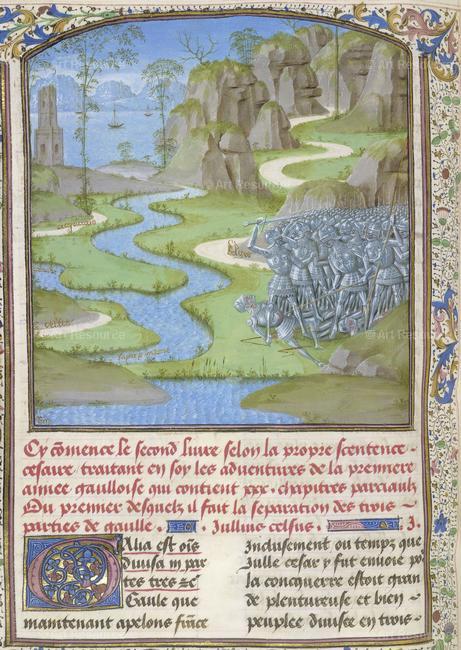 belges
celtes
Cy cõmence le second liure selon la propre sentence
cesaire traitant en soy les aduentures de la premiere
annee gauloise qui contient xxx. chapitres parciaulx
Du premier desquelz il fait la separation des trois
parties de gaulle. Jullius celsus. 3.
Galia est oĩs
diuisa in par
tes tres zc̃
Gaule que
maintenant apelons frãce
Inclusement ou temps que
Julle cesar y fut enuoie po
la conquerre estoit gran
de plentureuse et bien
peuplee diuisee en trois
Art Resource